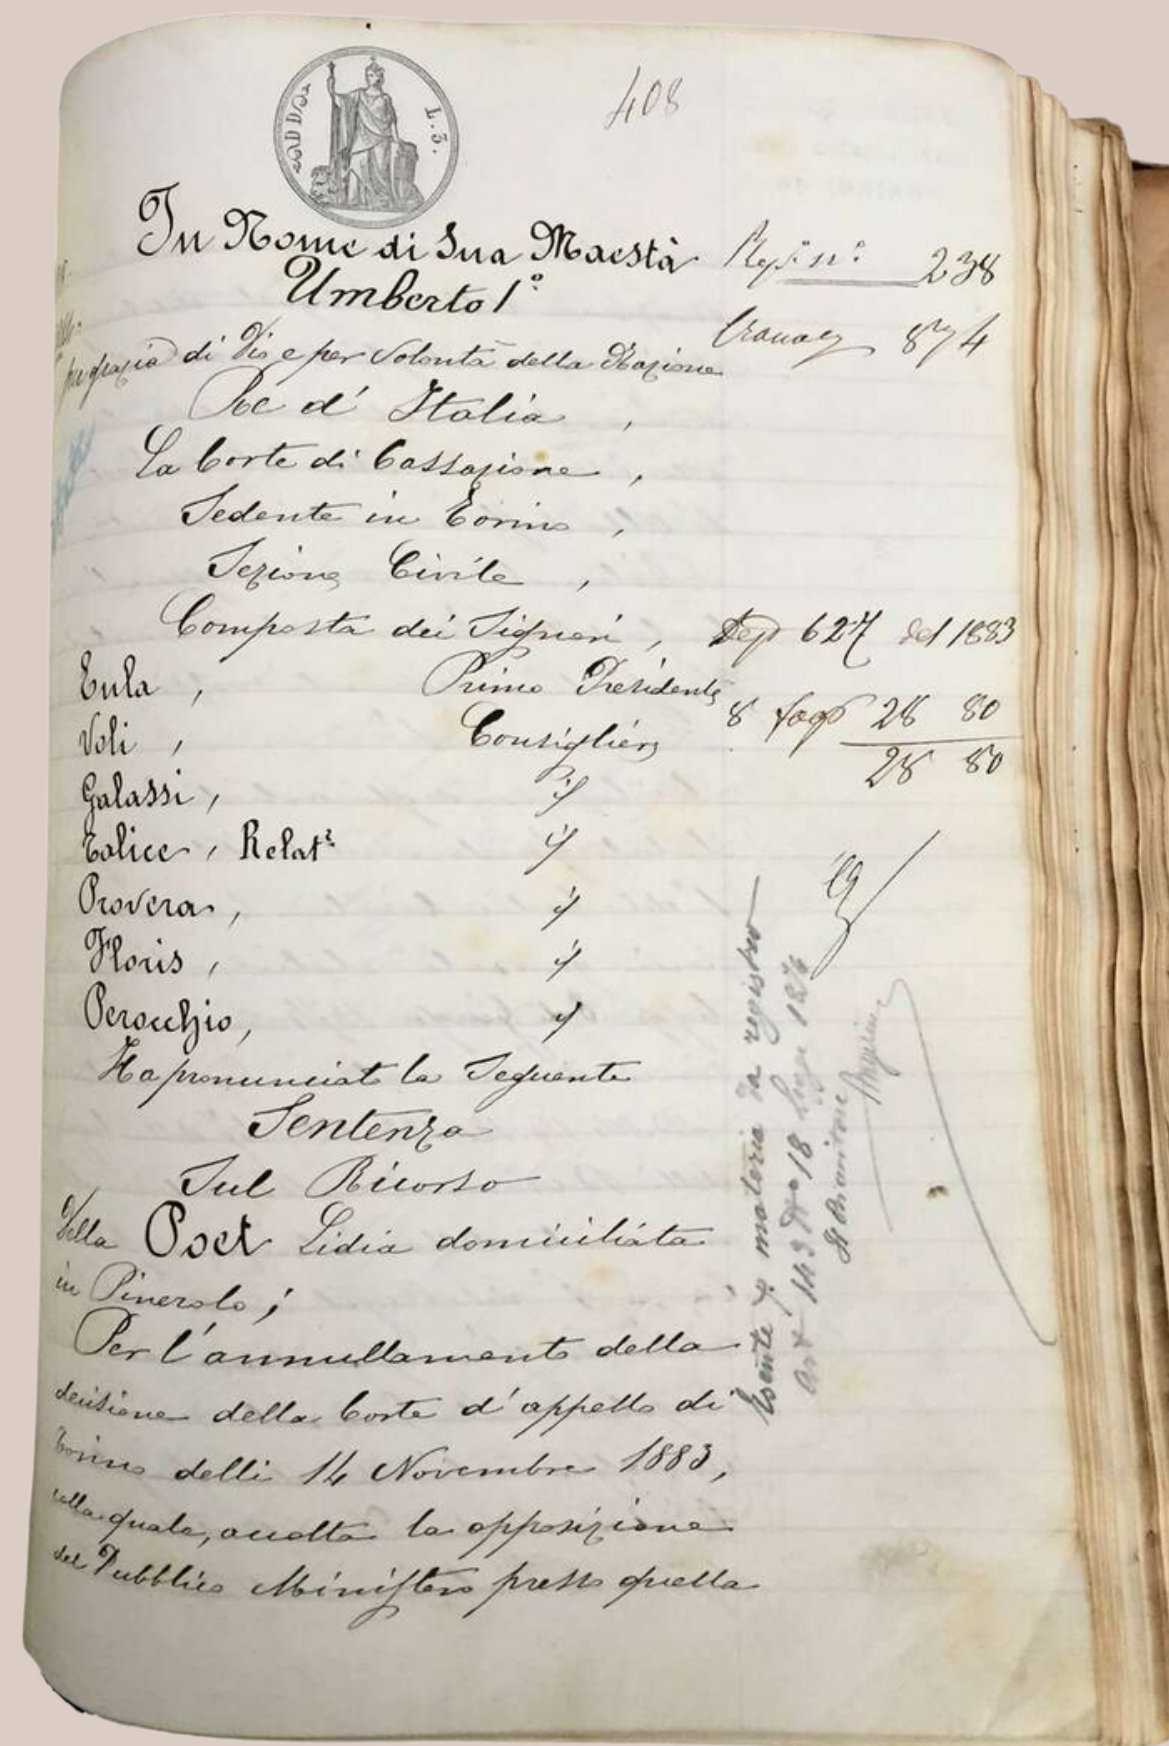 408
L. 3.
In Nome di Sua Maestà
Umberto 1°
per grazia di Dio e per Volontà della Nazione
Re d' Italia,
La Corte di Cassazione,
Sedente in Torino,
Sezione Civile,
Composta dei Signori,
Eula, Primo Presidente
Voli, Consigliere
Galassi, id
Talice, Relat.e id
Provera, id
Floris, id
Perocchio, id
Ha pronunciato la Seguente
Sentenza
Sul Ricorso
Della Poet Lidia domiciliata
in Pinerolo;
Per l'annullamento della
decisione della Corte d'appello di
Torino delli 14 Novembre 1883,
colla quale, accolta la opposizione
del Pubblico Ministero presso quella
Reg. n° 238
Cronaca 874
Dep 627 del 1883
8 fogo 28 80
28 80
Esente p. materia da registro
art 143 N° 18 Legge 1874